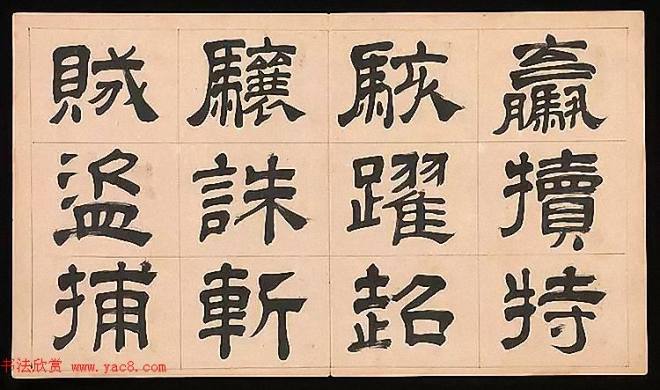 驘犢特
駭躍超
驤誅斬
賊盜捕
书法欣赏 www.yac8.com